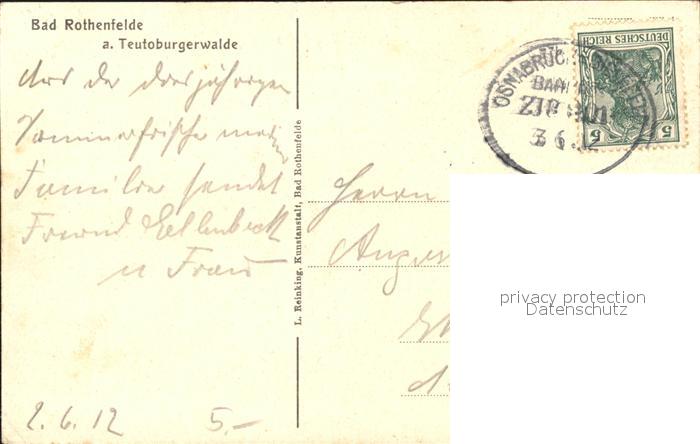 Bad Rothenfelde
a. Teutoburgerwalde
Aus der diesjährigen
Sommerfrische meiner
Familie sendet
Freund Ellenbeck
u Frau
2.6.12
5.—
L. Reinking, Kunstanstalt, Bad Rothenfelde
Herrn
OSNABRÜCK
BAHNPOST
ZUG
3 6 12
DEUTSCHES REICH
5 5
privacy protection
Datenschutz